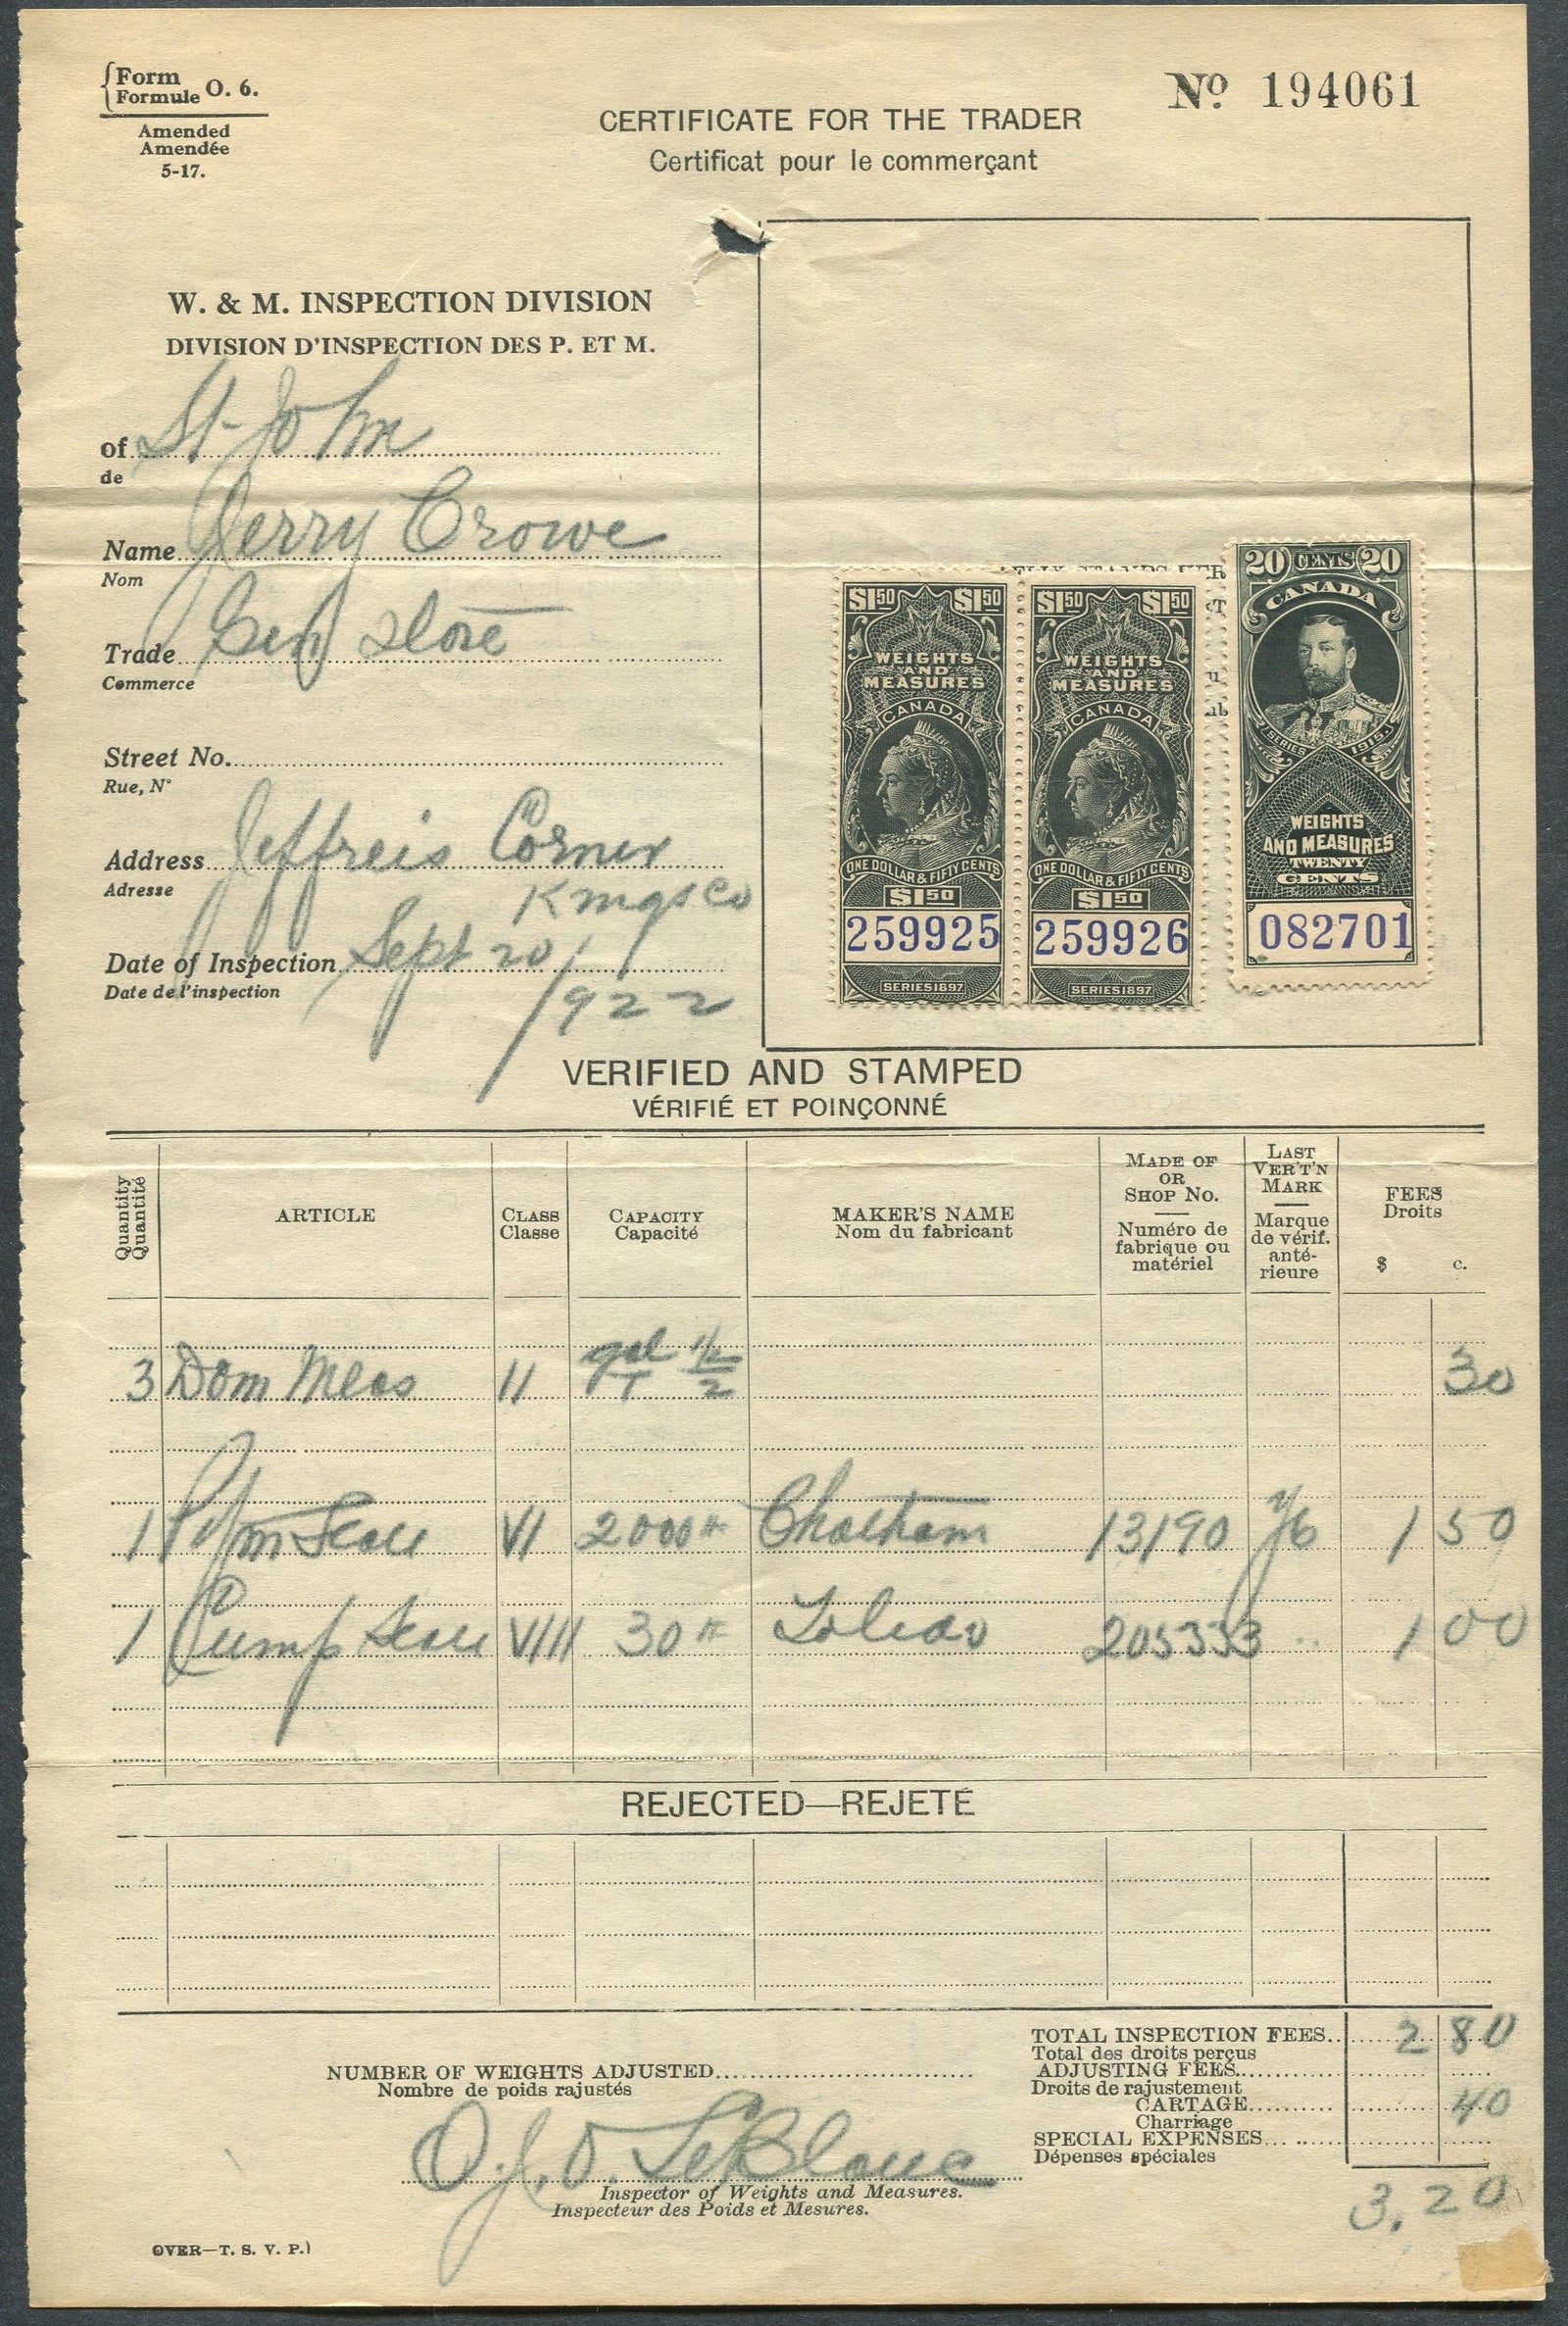 Form
Formule O. 6.
Amended
Amendée
5-17.
Nº 194061
CERTIFICATE FOR THE TRADER
Certificat pour le commerçant
W. & M. INSPECTION DIVISION
DIVISION D'INSPECTION DES P. ET M.
of St John
de
Name Jerry Crowe
Nom
Trade Genl Store
Commerce
Street No.
Rue, Nº
Address Jeffreis Corner
Adresse
Kings Co
Date of Inspection Sept 20/
Date de l'inspection
1922
$1.50 $1.50
WEIGHTS
AND
MEASURES
CANADA
ONE DOLLAR & FIFTY CENTS
$1.50
259925
SERIES 1897
$1.50 $1.50
WEIGHTS
AND
MEASURES
CANADA
ONE DOLLAR & FIFTY CENTS
$1.50
259926
SERIES 1897
20 CENTS 20
CANADA
SERIES 1915
WEIGHTS
AND MEASURES
TWENTY
CENTS
082701
VERIFIED AND STAMPED
VÉRIFIÉ ET POINÇONNÉ
Quantity
Quantité
ARTICLE
CLASS
Classe
CAPACITY
Capacité
MAKER'S NAME
Nom du fabricant
MADE OF
OR
SHOP No.
Numéro de
fabrique ou
matériel
LAST
VER'T'N
MARK
Marque
de vérif.
anté-
rieure
FEES
Droits
$ c.
3 Dom Meas II gal 1/2 30
1 Scale VI 2000 # Chatham 13190 1 50
1 Comp Scale VIII 30 # Toledo 205333 1 00
REJECTED—REJETÉ
TOTAL INSPECTION FEES.. 2 80
Total des droits perçus
ADJUSTING FEES
Droits de rajustement
CARTAGE 40
Charriage
SPECIAL EXPENSES
Dépenses spéciales
3.20
NUMBER OF WEIGHTS ADJUSTED
Nombre de poids rajustés
O. J. O. LeBlanc
Inspector of Weights and Measures.
Inspecteur des Poids et Mesures.
OVER—T. S. V. P.)